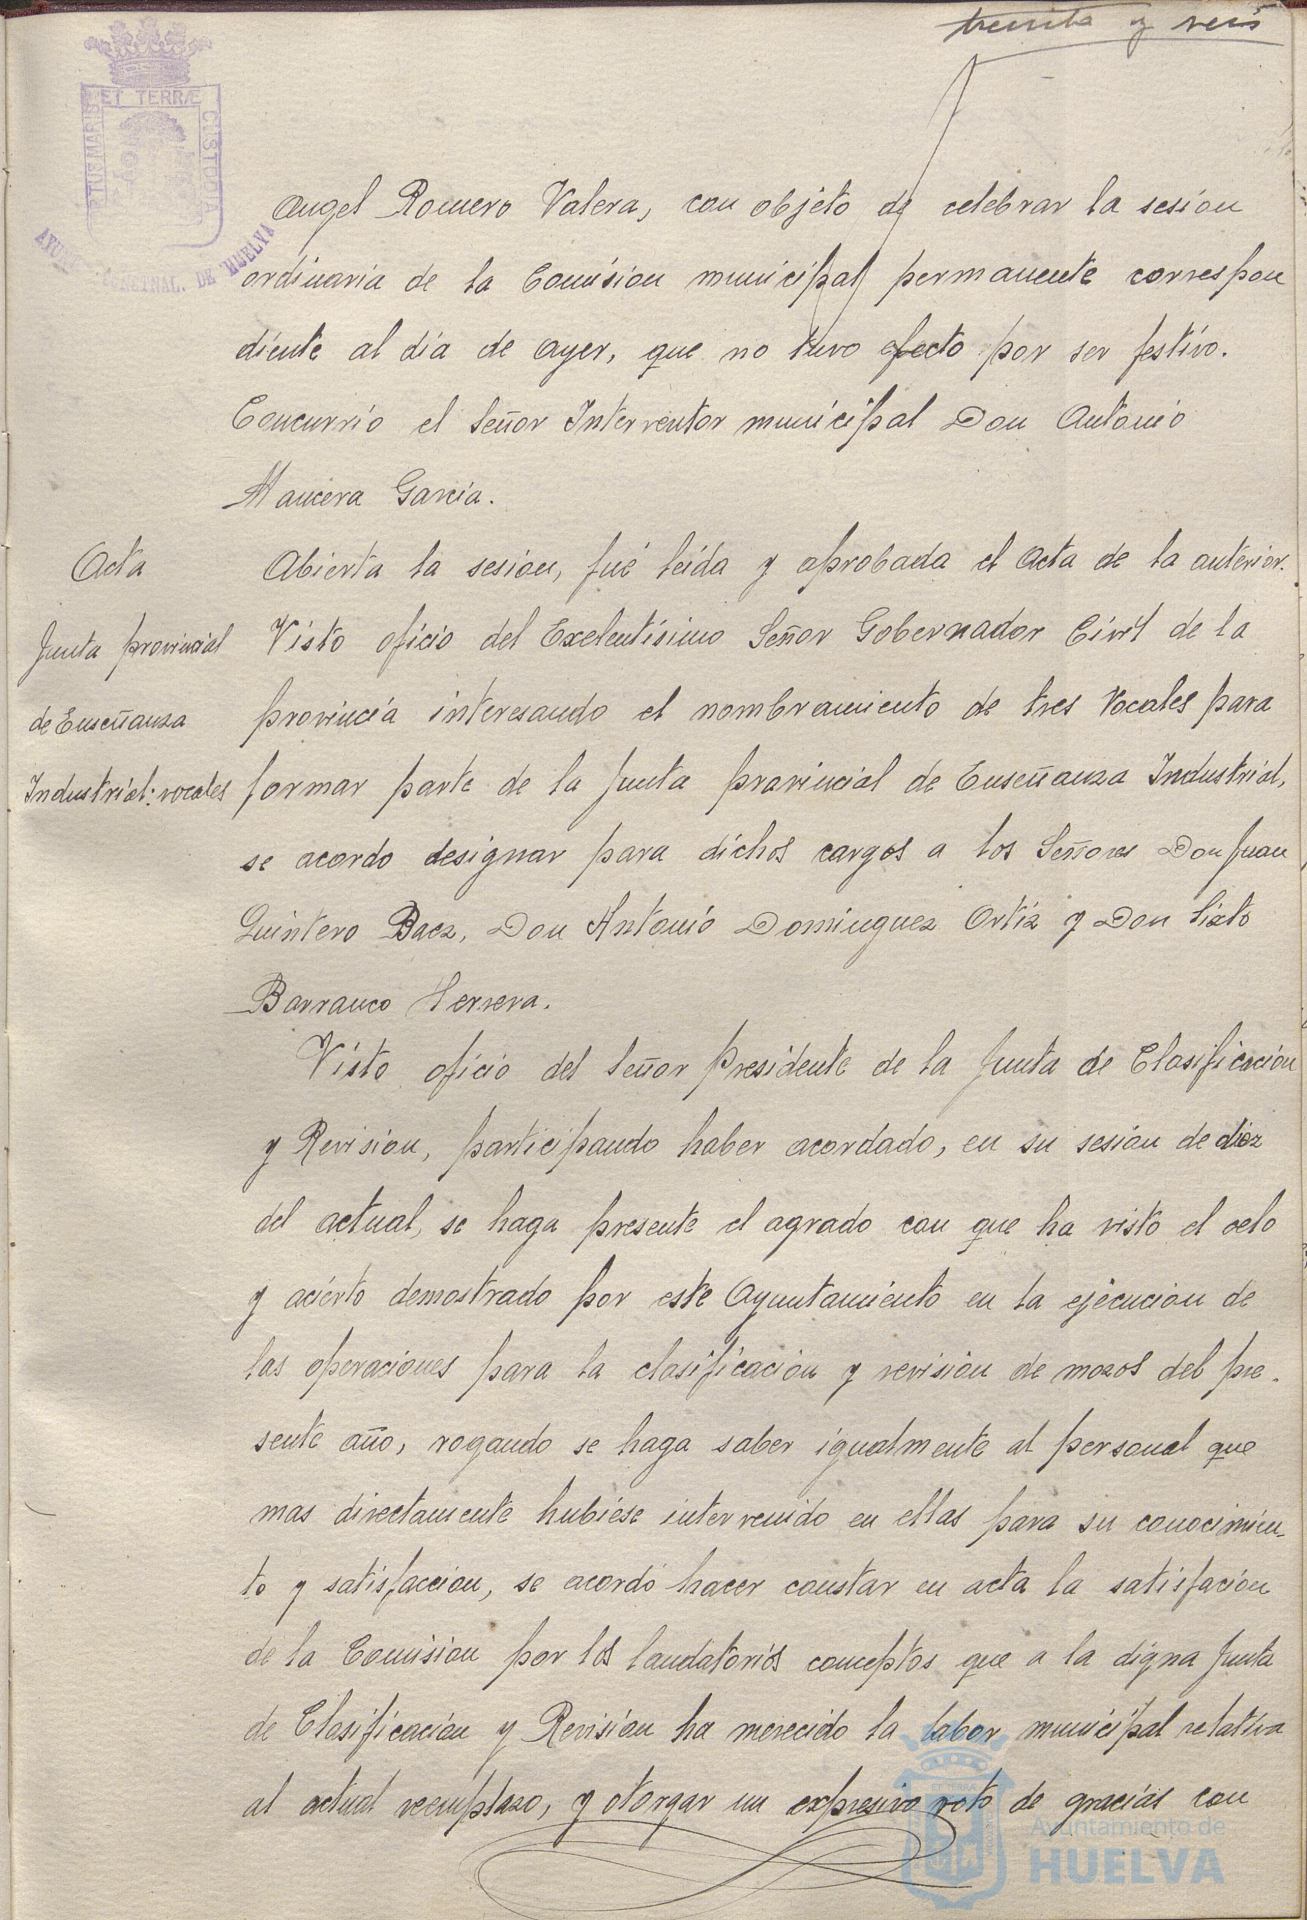 treinta y seis
PORTUS MARIS ET TERRÆ CUSTODIA
AYUNT. CONSTNAL. DE HUELVA
Angel Romero Valera, con objeto de celebrar la sesion
ordinaria de la Comision municipal permanente correspon
diente al dia de ayer, que no tuvo efecto por ser festivo.
Concurrio el Señor Interventor municipal Don Antonio
Mancera Garcia.
Acta
Abierta la sesion, fué leida y aprobada el Acta de la anterior.
Junta provincial
de Enseñanza
Industrial: vocales
Visto oficio del Exelentisimo Señor Gobernador Civil de la
provincia interesando el nombramiento de tres Vocales para
formar parte de la Junta provincial de Enseñanza Industrial,
se acordo designar para dichos cargos a los Señores Don Juan
Quintero Baez, Don Antonio Dominguez Ortiz y Don Sixto
Barranco Herrera.
Visto oficio del Señor Presidente de la Junta de Clasificacion
y Revision, participando haber acordado, en su sesion de diez
del actual, se haga presente el agrado con que ha visto el celo
y acierto demostrado por este Ayuntamiento en la ejecucion de
las operaciones para la clasificacion y revision de mozos del pre-
sente año, rogando se haga saber igualmente al personal que
mas directamente hubiese intervenido en ellas para su conocimien-
to y satisfaccion, se acordó hacer constar en acta la satisfacion
de la Comision por los laudatorios conceptos que a la digna Junta
de Clasificacion y Revision ha merecido la labor municipal relativa
al actual reemplazo, y otorgar un expresivo voto de gracias con
Ayuntamiento de
HUELVA